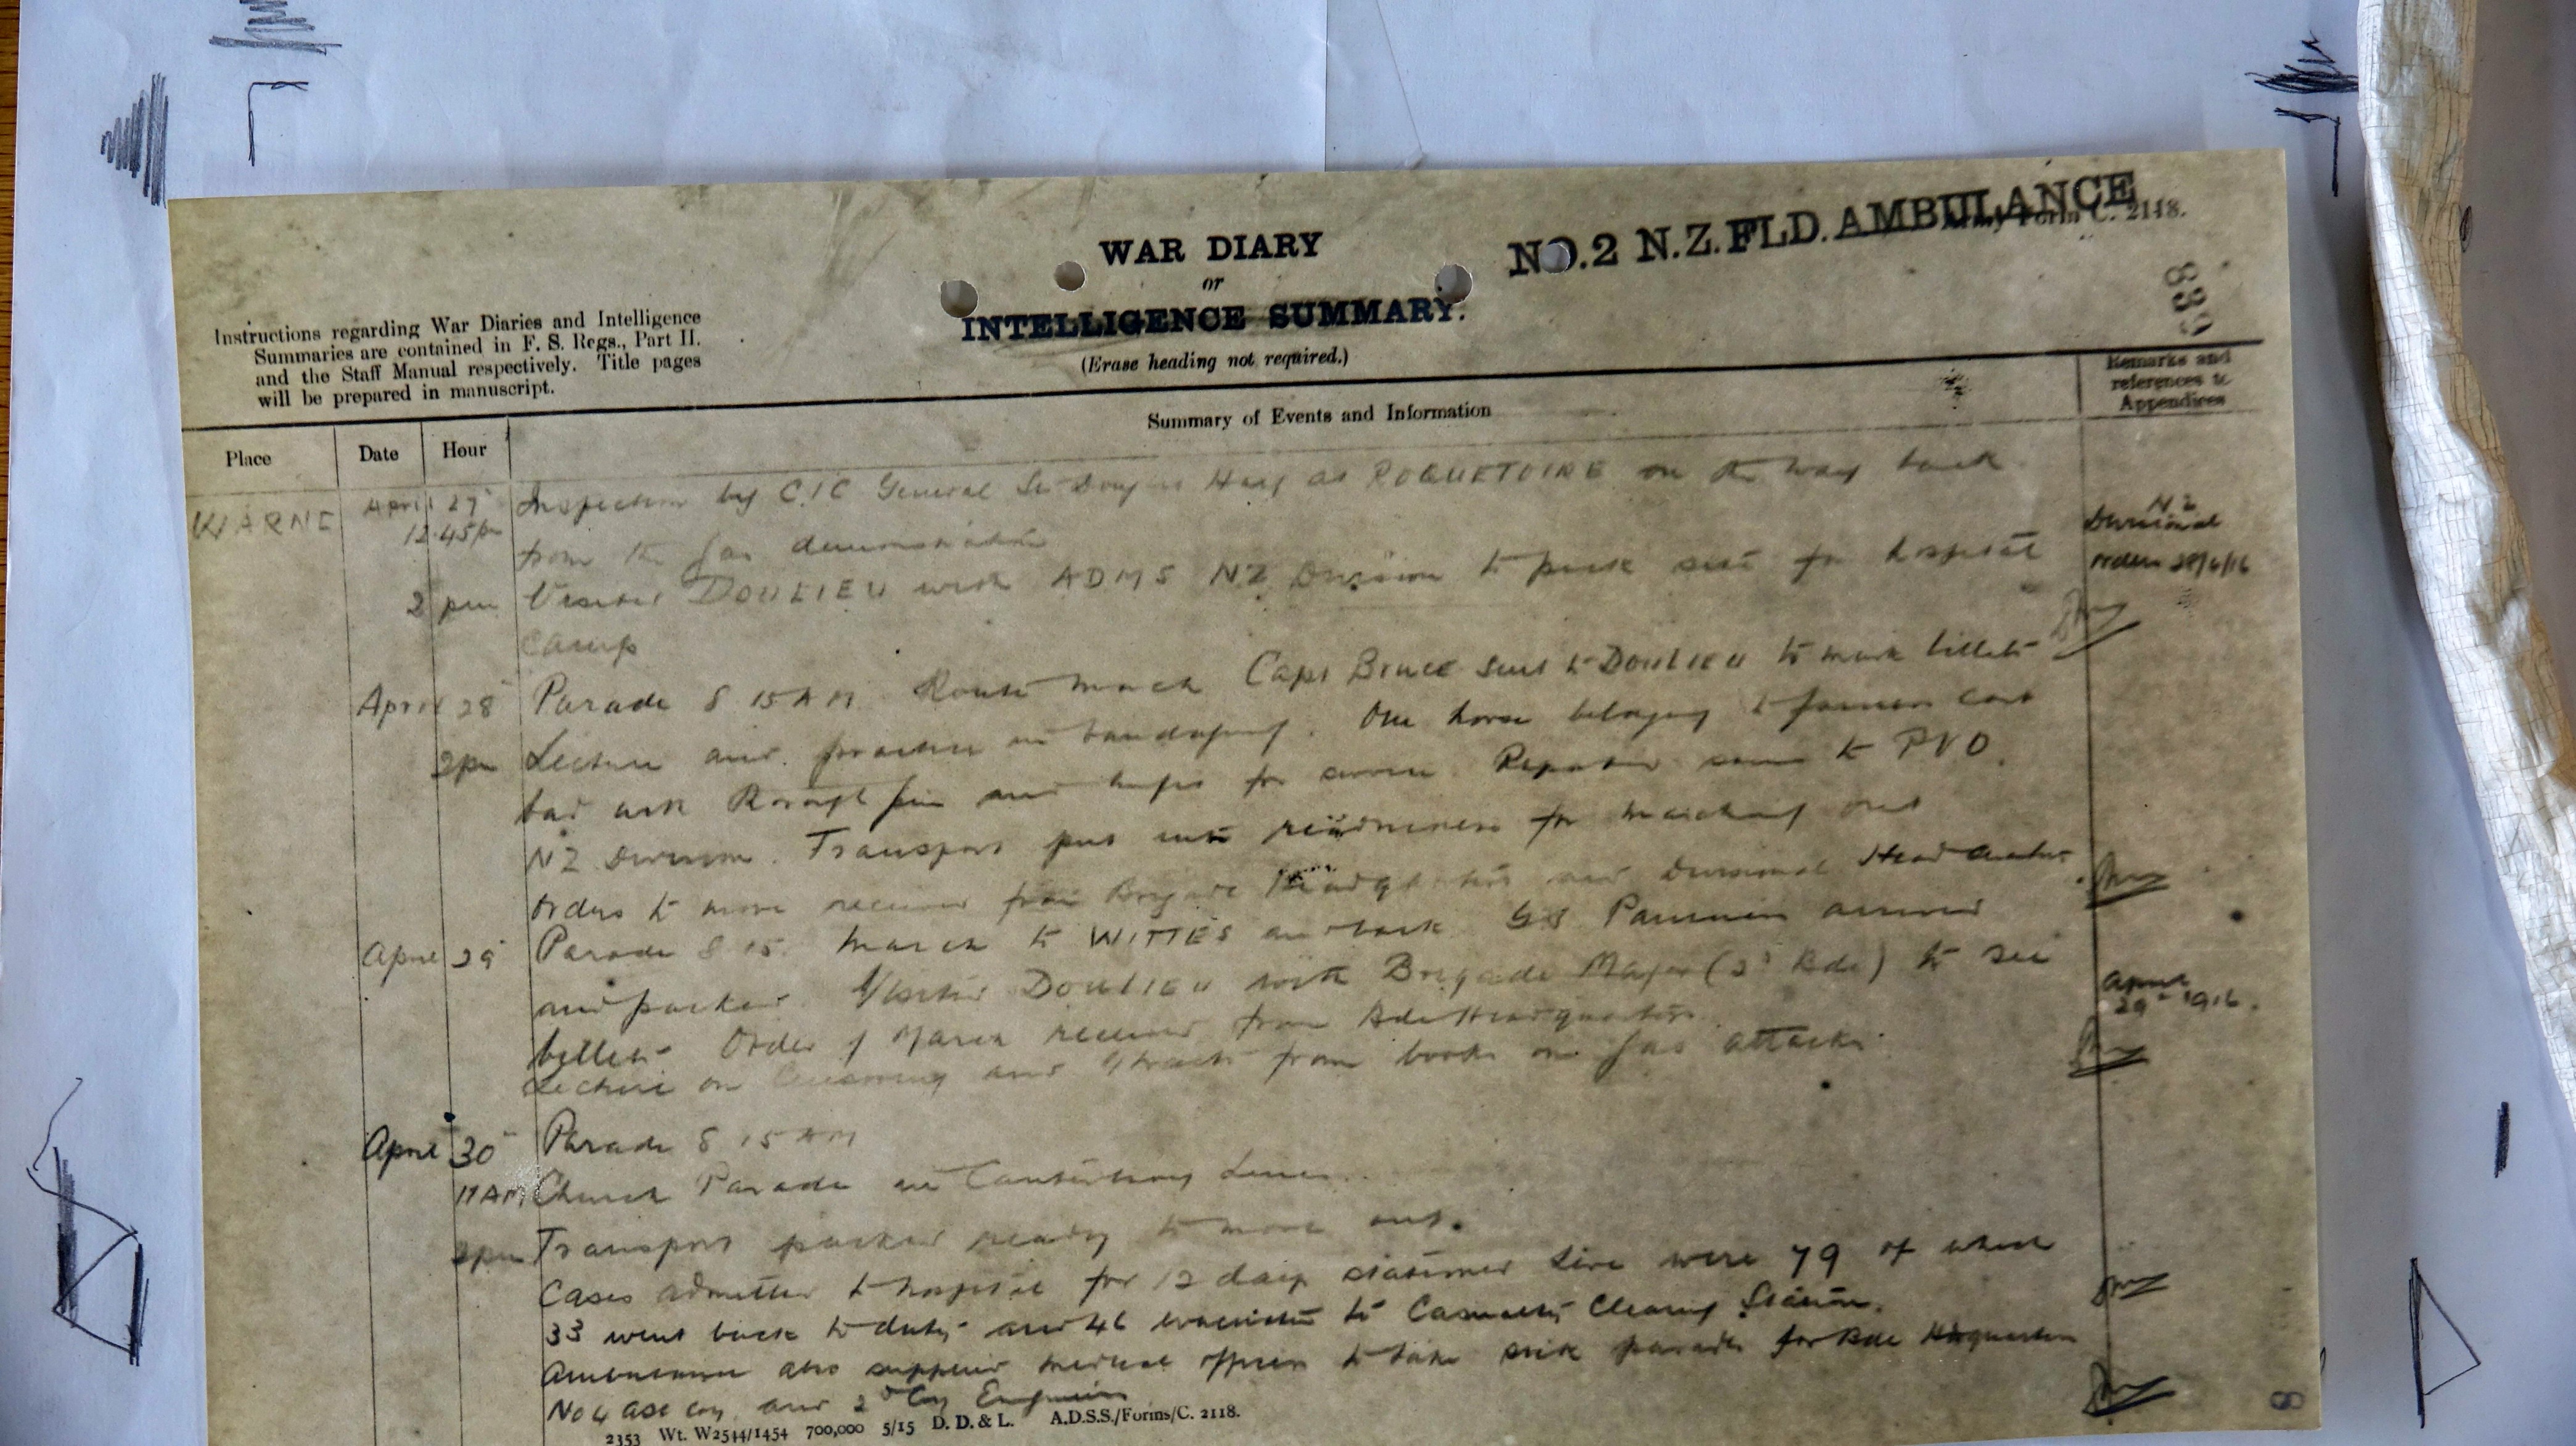 NO.2 N.Z.FLD.AMBULANCE
Army Form C. 2118.
WAR DIARY
or
INTELLIGENCE SUMMARY.
(Erase heading not required.)
Instructions regarding War Diaries and Intelligence
Summaries are contained in F. S. Regs., Part II.
and the Staff Manual respectively. Title pages
will be prepared in manuscript.
Remarks and
references to
Appendices
Summary of Events and Information
Place Date Hour
WARNE April 27 Inspection by C.I.C General Sir Douglas Haig at ROQUETOIRE on the way back
12.45pm from the gas demonstration
N.Z
Divisional
orders 28/4/16
2 pm Visited DOULIEU with ADMS NZ Division to pick site for hospital
camp
April 28 Parade 8 15 AM Route march Capt Bruce sent to DOULIEU to mark billets
2pm Lecture and practice in bandaging. One horse belonging to farmer cast
NZ Division. Transport put into readiness for marching out
bad with and for Reported same to PVO.
Orders to move received from Brigade Headquarters and Divisional Headquarters
April 29 Parade 8 15. March to WITTES and back. GS arrived
and packed. Visited DOULIEU with Brigade Major (2d Bde) to see
billets Order of March received from Bde Headquarters.
April
29th 1916.
Lecture on and from books on gas attacks.
April 30 Parade 8 15 AM
11 AM Church Parade in Canterbury Lines.
2pm Transport packed ready to move out.
Cases admitted to hospital for 12 days stationed here were 79 of which
33 went back to duty and 46 evacuated to Casualty Clearing Station.
Ambulance also supplied medical officer to take sick parade for Bde Hdquarters
No 4 ASC Coy. and 2d Coy Engineers
2353 Wt. W2544/1454 700,000 5/15 D. D. & L. A.D.S.S./Forms/C. 2118.
8